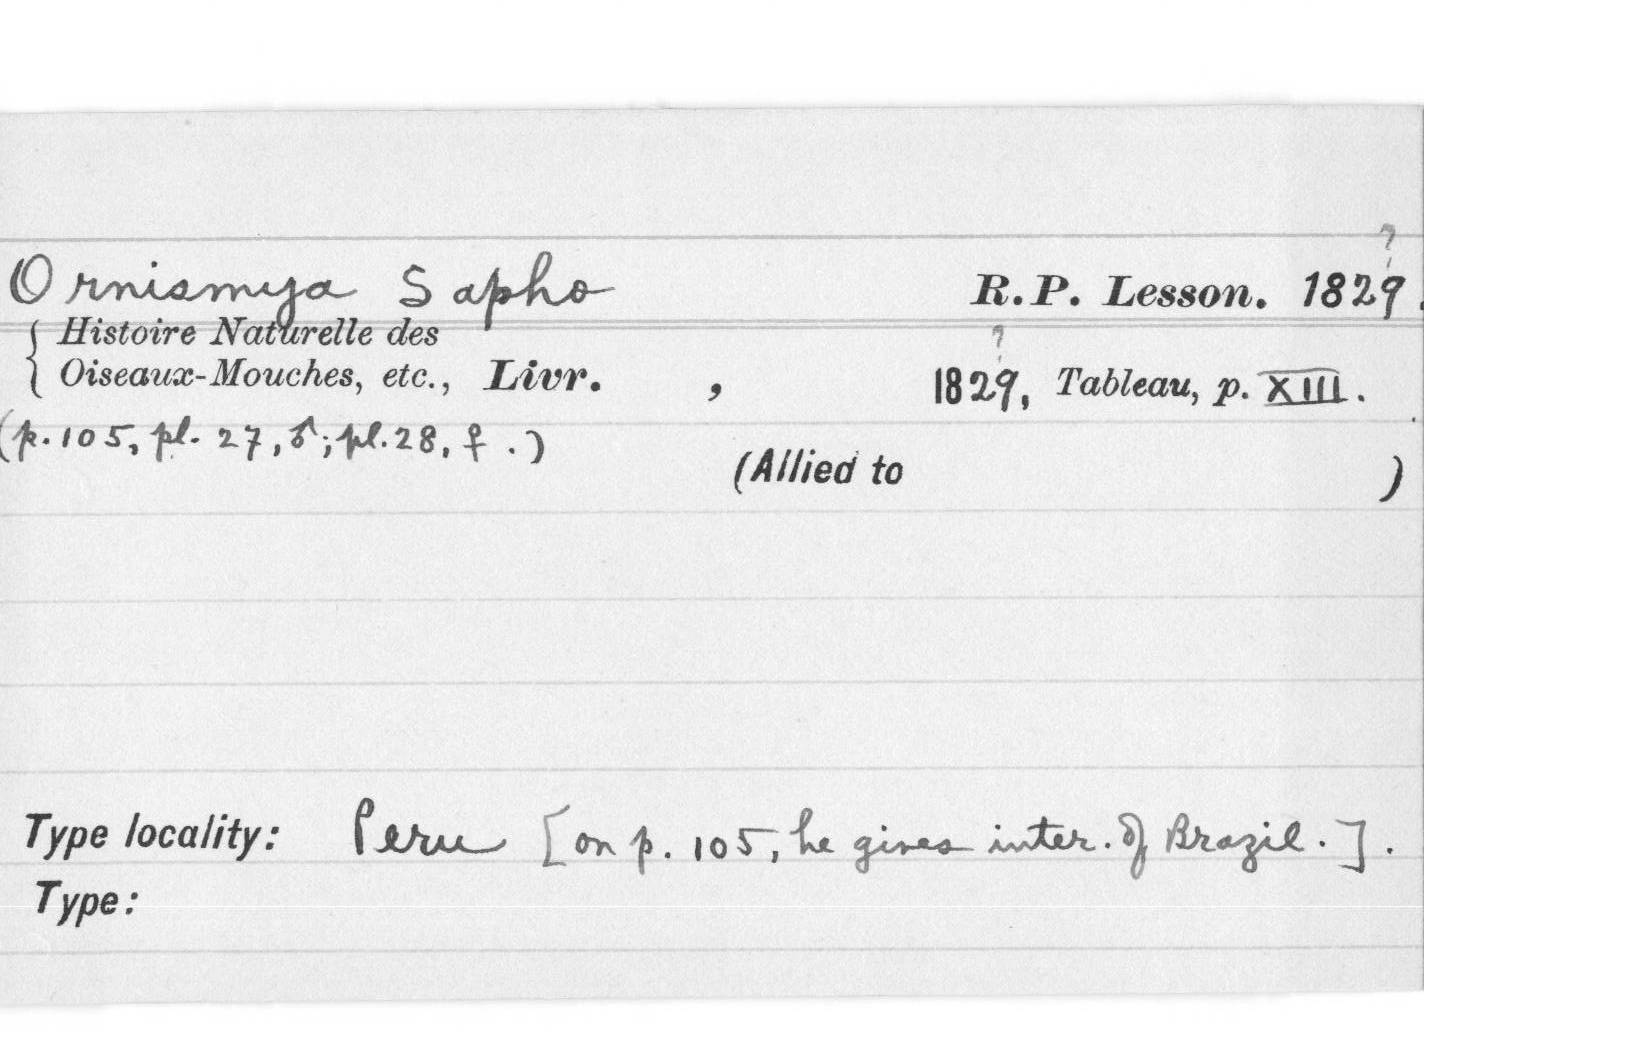 ?
Ornismya Sapho R.P. Lesson. 1829.
{ Histoire Naturelle des ?
Oiseaux-Mouches, etc., Livr. , 1829, Tableau, p. XIII.
(p. 105, pl. 27, ♂; pl. 28, ♀.)
(Allied to )
Type locality: Peru [on p. 105, he gives inter. of Brazil.].
Type: